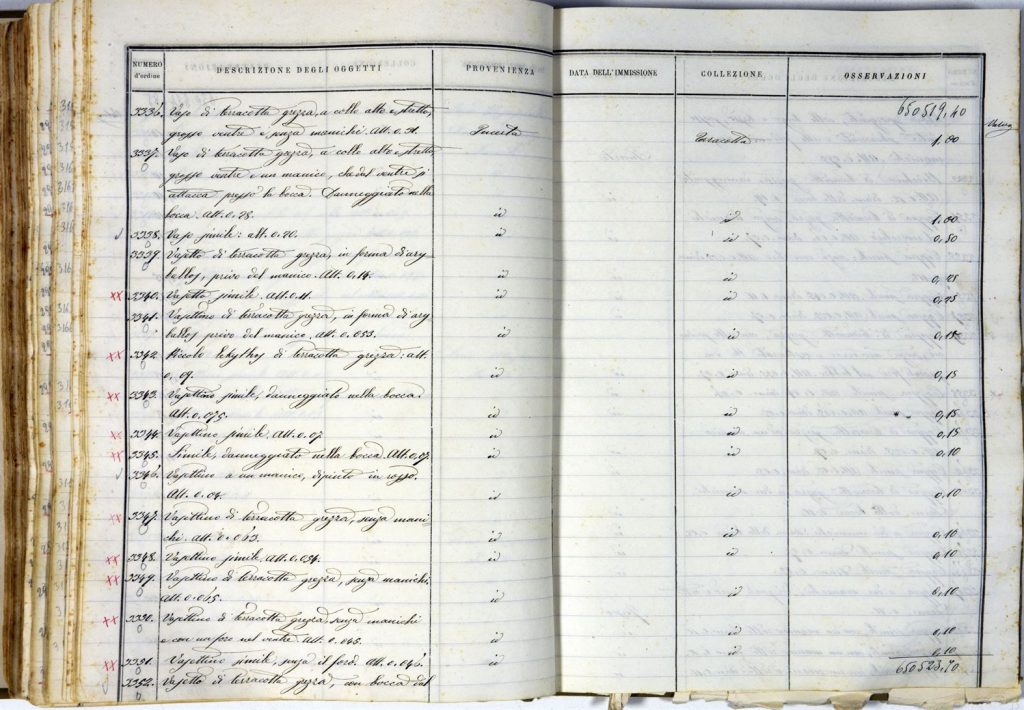 NUMERO d'ordine DESCRIZIONE DEGLI OGGETTI PROVENIENZA DATA DELL'IMMISSIONE COLLEZIONE OSSERVAZIONI
650519,40
3336. Vaso di terracotta grezza, a collo alto e stretto,
grosso ventre e senza manichi. Alt. 0.31. Incerta Terracotta 1.00
3337. Vaso di terracotta grezza, a collo alto e stretto,
grosso ventre e un manico, che dal ventre si
attacca presso la bocca. Danneggiato nella
bocca. Alt. 0.25. id id 1.00
3338. Vaso simile: alt. 0.20. id id 0,50
3339. Vasetto di terracotta grezza, in forma di ary
ballos, privo del manico. Alt. 0,14. id id 0,25
XX 3340. Vasetto simile. Alt. 0.11. id id 0,25
3341. Vasettino di terracotta grezza, in forma di ary
ballos privo del manico. Alt. 0.053. id id 0,15
XX 3342. Piccolo lekythos di terracotta grezza: alt.
0.09. id id 0,15
XX 3343. Vasettino simile, danneggiato nella bocca.
Alt. 0.075. id id 0,15
3344. Vasettino simile. Alt. 0.07 id id 0,15
XX 3345. Simile, danneggiato nella bocca. Alt. 0,07. id id 0,10
3346. Vasettino a un manico, dipinto in rosso.
Alt. 0.04. id id 0,10
XX 3347. Vasettino di terracotta grezza, senza mani
chi. Alt. 0.063. id id 0,10
XX 3348. Vasettino simile. Alt. 0.054. id id 0,10
XX 3349. Vasettino di terracotta grezza, senza manichi.
Alt. 0.065. id id 0,10
XX 3350. Vasettino di terracotta grezza, senza manichi
e con un foro nel ventre. Alt. 0.045. id id 0,10
XX 3351. Vasettino simile, senza il foro. Alt. 0.046. id id 0,10
3352. Vasetto di terracotta grezza, con bocca dal 650523,70